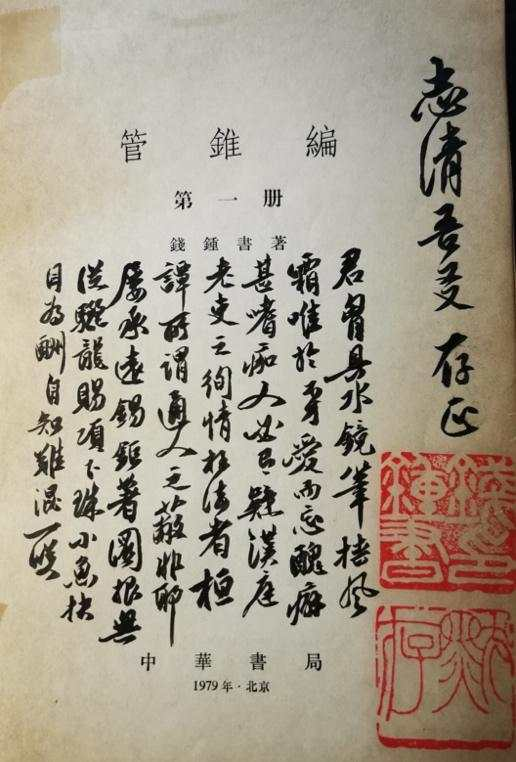 志清吾友 存正
管錐編
第一册
錢鍾書著
君胷具水鏡筆挾風
霜唯於弟愛而忘醜癖
甚嗜痂人必疑漢庭
老吏之徇情枉法者桓
譚所謂通人之蔽非耶
屢承遠錫鉅著圖報無
從驪龍賜項下珠小魚抉
目為酬自知難混一咲
中華書局
1979年·北京
默存